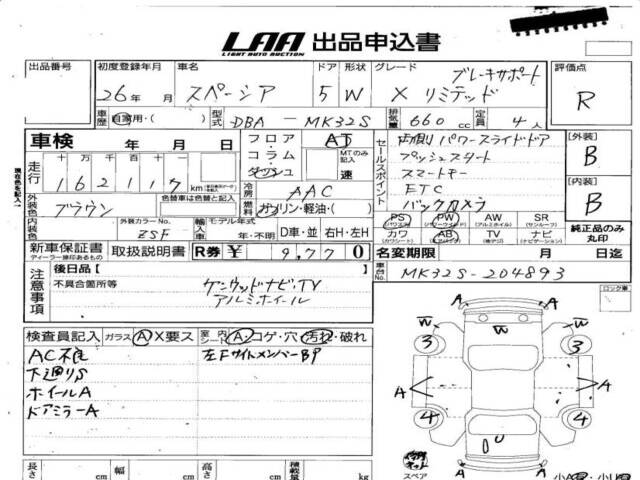 LAA 出品申込書
LIGHT AUTO AUCTION
出品番号 初度登録年月 車名 ドア 形状 グレード 評価点
26年 月 スペーシア 5 W X リミテッド ブレーキサポート R
車歴 自家用・( ) 型式 DBA - MK32S 排気量 660 cc 定員 4人
車検 年 月 日
フロア・コラム・ダッシュ AT MTのみ記入 速
セールスポイント
両側パワースライドドア
プッシュスタート
スマートキー
ETC
バックカメラ
[外装] B
[内装] B
現在色を記入→
走行 十 万 千 百 十
1 6 2 1 1 7 km
冷房 AAC
外装色 ブラウン 色替車は色替と記入
燃料 ガソリン・軽油・( )
内装色 外装カラーNo. ZSF
輸入車 モデル年式 年・不明 D車・並 右H・左H
PS (パワステ) PW (パワーウインド) AW (アルミホイル) SR (サンルーフ)
カワ (カワシート) AB (エアバック) TV (地デジ) ナビ (ナビゲーション)
純正品のみ丸印
新車保証書 取扱説明書 R券 ¥ 9,770
ディーラー捺印あるもの
名変期限 月 日迄
車台No. MK32S-204893
注意事項
後日品( )
不具合箇所等 ケンウッドナビ,TV
アルミホイール
ロック車
検査員記入 ガラス A X要ス 室内 シート A・コゲ・穴 汚れ・破れ
AC不良 左FサイドメンバーB9
下廻りS
ホイールA
ドアミラーA
A A
W W W
3 3
A A
4 4
U
A A
スペア
長さ cm 幅 cm 高さ cm 積載量 kg